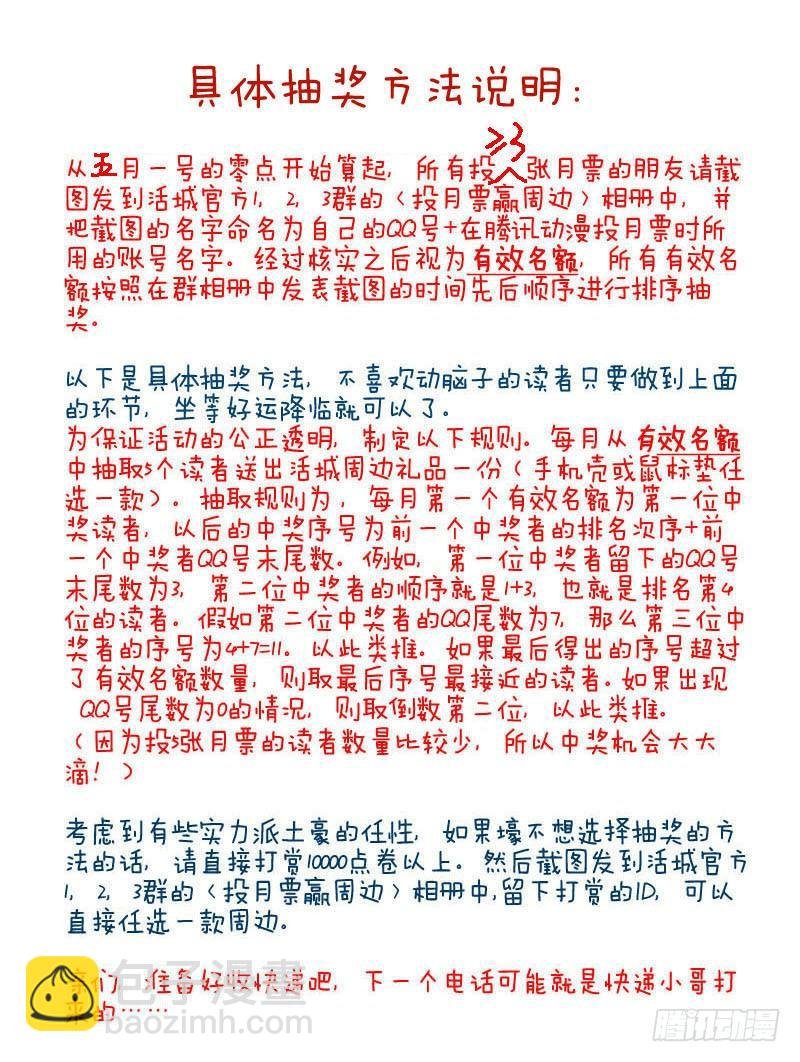 具体抽奖方法说明：
≥3
从五月一号的零点开始算起，所有投 张月票的朋友请截
图发到活城官方1，2，3群的（投月票赢周边）相册中，并
把截图的名字命名为自己的QQ号+在腾讯动漫投月票时所
用的账号名字。经过核实之后视为有效名额，所有有效名
额按照在群相册中发表截图的时间先后顺序进行排序抽
奖。
以下是具体抽奖方法，不喜欢动脑子的读者只要做到上面
的环节，坐等好运降临就可以了。
为保证活动的公正透明，制定以下规则。每月从有效名额
中抽取5个读者送出活城周边礼品一份（手机壳或鼠标垫任
选一款）。抽取规则为，每月第一个有效名额为第一位中
奖读者，以后的中奖序号为前一个中奖者的排名次序+前
一个中奖者QQ号末尾数。例如，第一位中奖者留下的QQ号
末尾数为3，第二位中奖者的顺序就是1+3，也就是排名第4
位的读者。假如第二位中奖者的QQ尾数为7，那么第三位中
奖者的序号为4+7=11。以此类推。如果最后得出的序号超过
了有效名额数量，则取最后序号最接近的读者。如果出现
QQ号尾数为0的情况，则取倒数第二位，以此类推。
（因为投5张月票的读者数量比较少，所以中奖机会大大
滴！）
考虑到有些实力派土豪的任性，如果壕不想选择抽奖的方
法的话，请直接打赏10000点卷以上。然后截图发到活城官方
1，2，3群的（投月票赢周边）相册中，留下打赏的ID，可以
直接任选一款周边。
们 准备好收快递吧，下一个电话可能就是快递小哥打
来的……
包子漫畫
baozimh.com
腾讯动漫